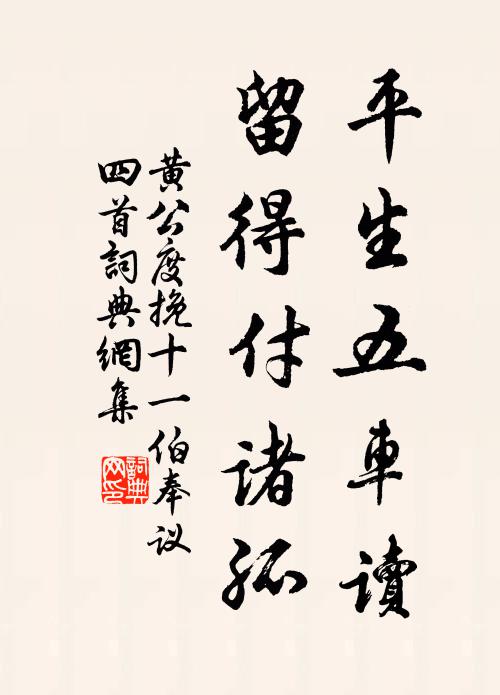 平生五車讀
留得付諸孤
黄公度挽十一伯奉议
四首詞典網集
詞典網印